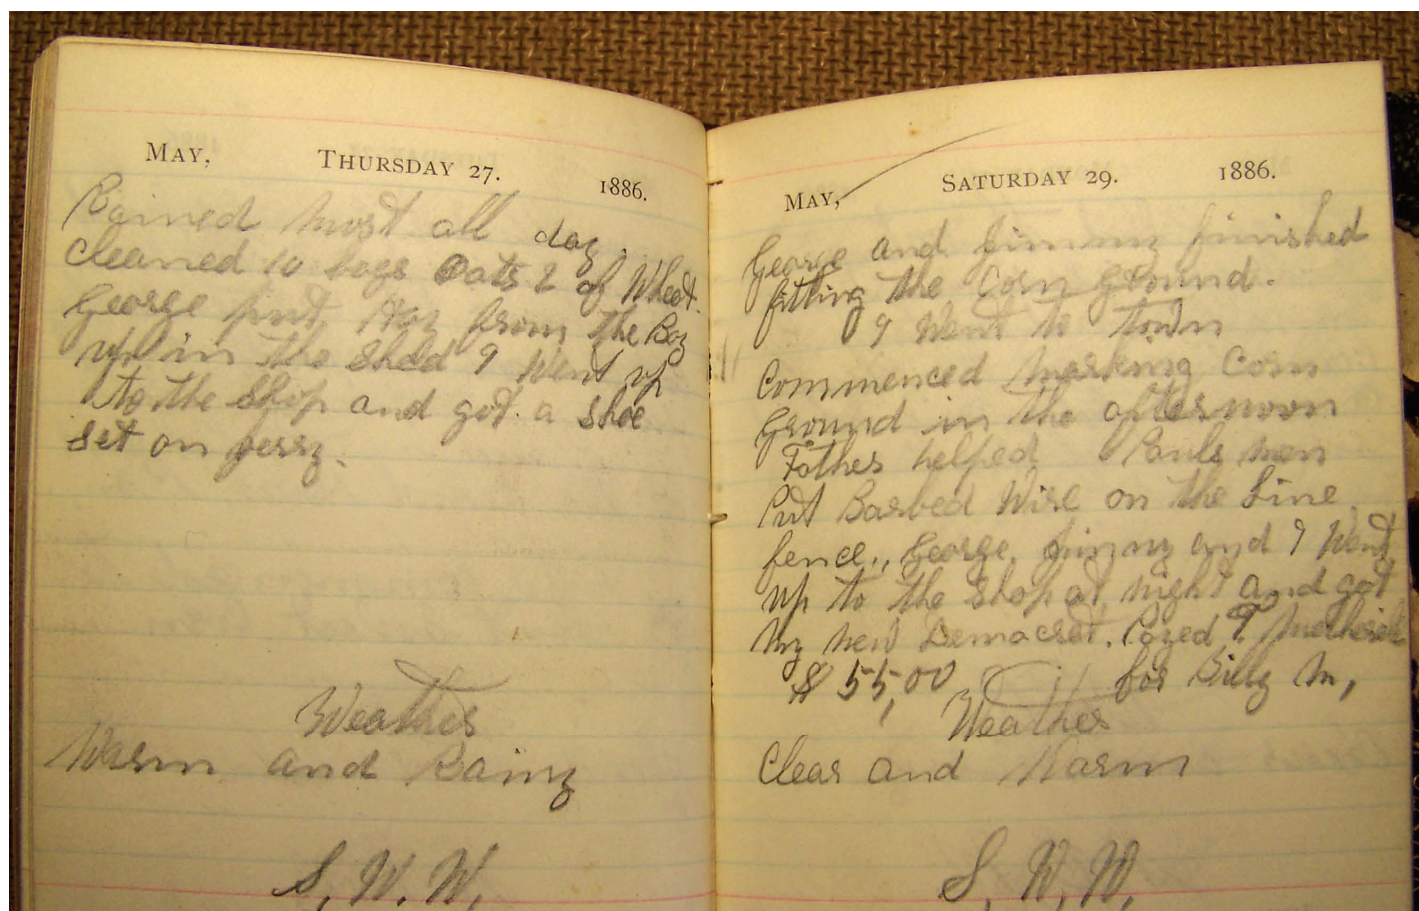 MAY, THURSDAY 27. 1886.
Rained most all day.
Cleaned 10 bags Oats 2 of Wheat.
George put Hay from the Bay
up in the shed I Went up
to the Shop and got a shoe
set on jerry.
Weather
Warm and Rainy
S. W. W.
MAY, SATURDAY 29. 1886.
George and Jimmy finished
fitting the Corn ground.
I Went to town
Commenced marking Corn
Ground in the afternoon
Father helped Pauls men
Put Barbed Wire on the Line
fence., George, Jimmy and I Went
up to the Shop at night and got
my new Democrat. Payed
$ 55,00 for Billy M,
Weather
Clear and Warm
S. W. W.